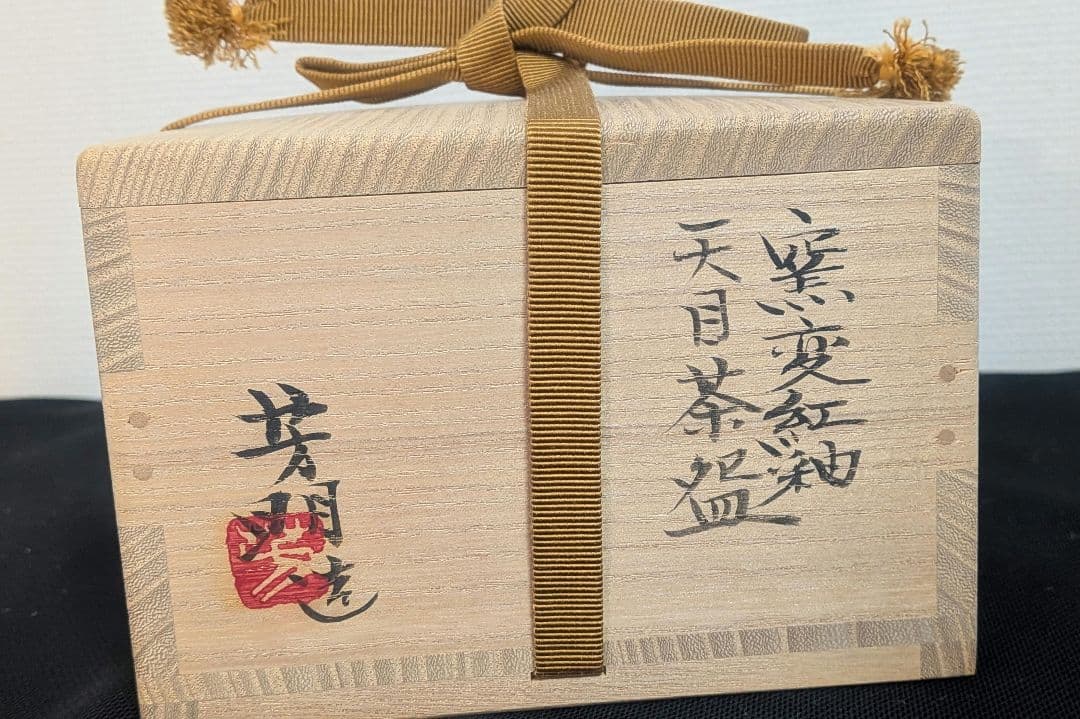 窯変紅釉
天目茶盌
芳明造